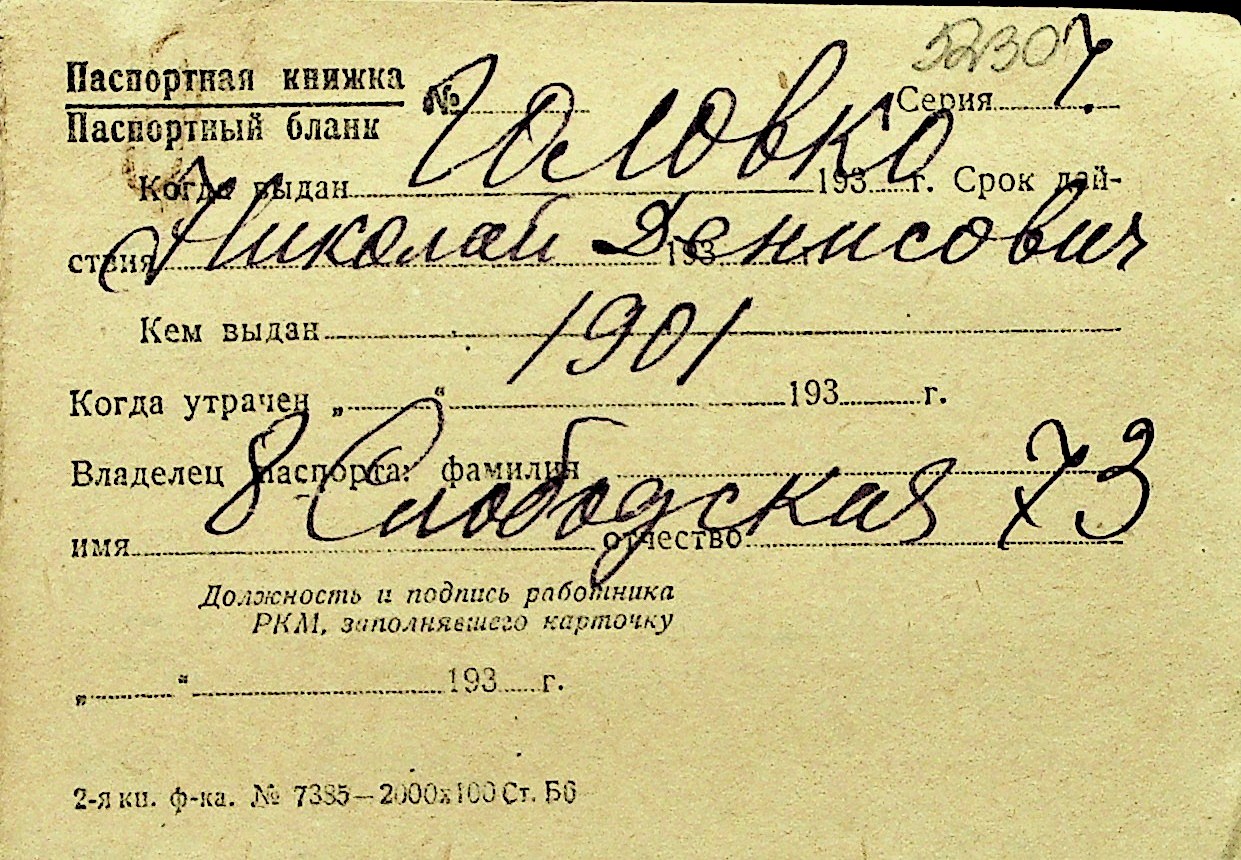 52307.
Паспортная книжка
№ Серия
Паспортный бланк
Головко
Когда выдан 193 г. Срок дай-
Николай Денисович
ствия 193
1901
Кем выдан
Когда утрачен „ “ 193 г.
Владелец паспорта: фамилия
8 Слободская 73
имя отчество
Должность и подпись работника
РКМ, заполнявшего карточку
„ “ 193 г.
2-я кн. ф-ка. № 7385—2000х100 Ст. Б6